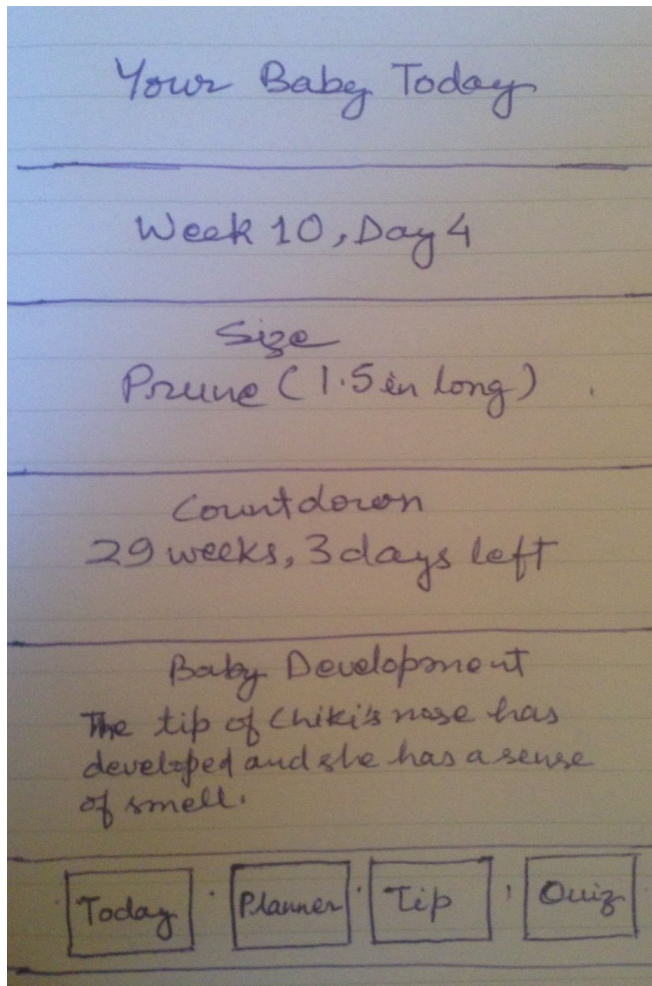 Your Baby Today
Week 10, Day 4
Size
Prune (1.5 in long)
Countdown
29 weeks, 3 days left
Baby Development
The tip of Chiki's nose has
developed and she has a sense
of smell.
Today Planner Tip Quiz